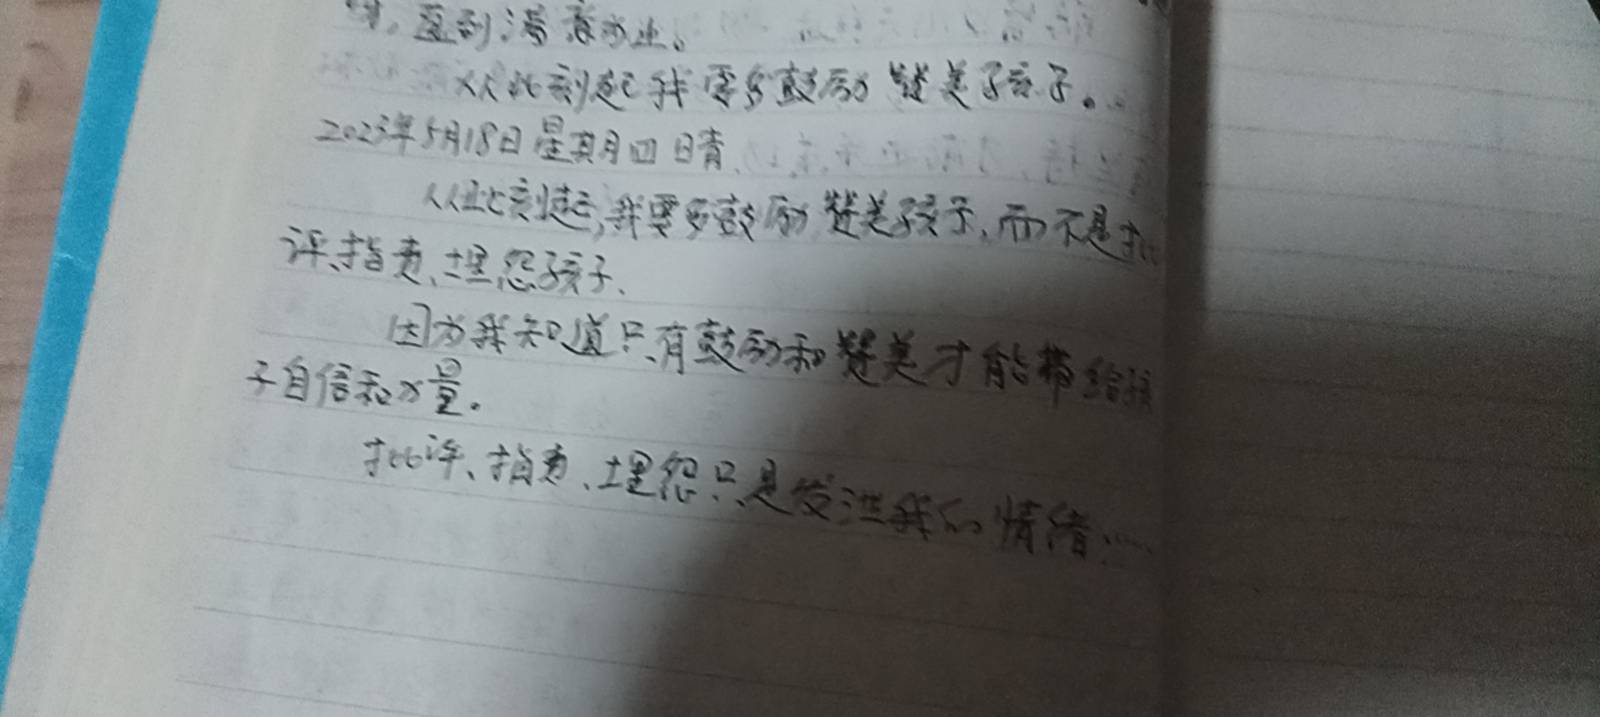 直到满意为止。
从此刻起我要多鼓励赞美孩子。
2023年5月18日星期四 晴
从此刻起,我要多鼓励赞美孩子,而不是批
评、指责、埋怨孩子.
因为我知道只有鼓励和赞美才能带给孩
子自信和力量。
批评、指责、埋怨只是发泄我的情绪......